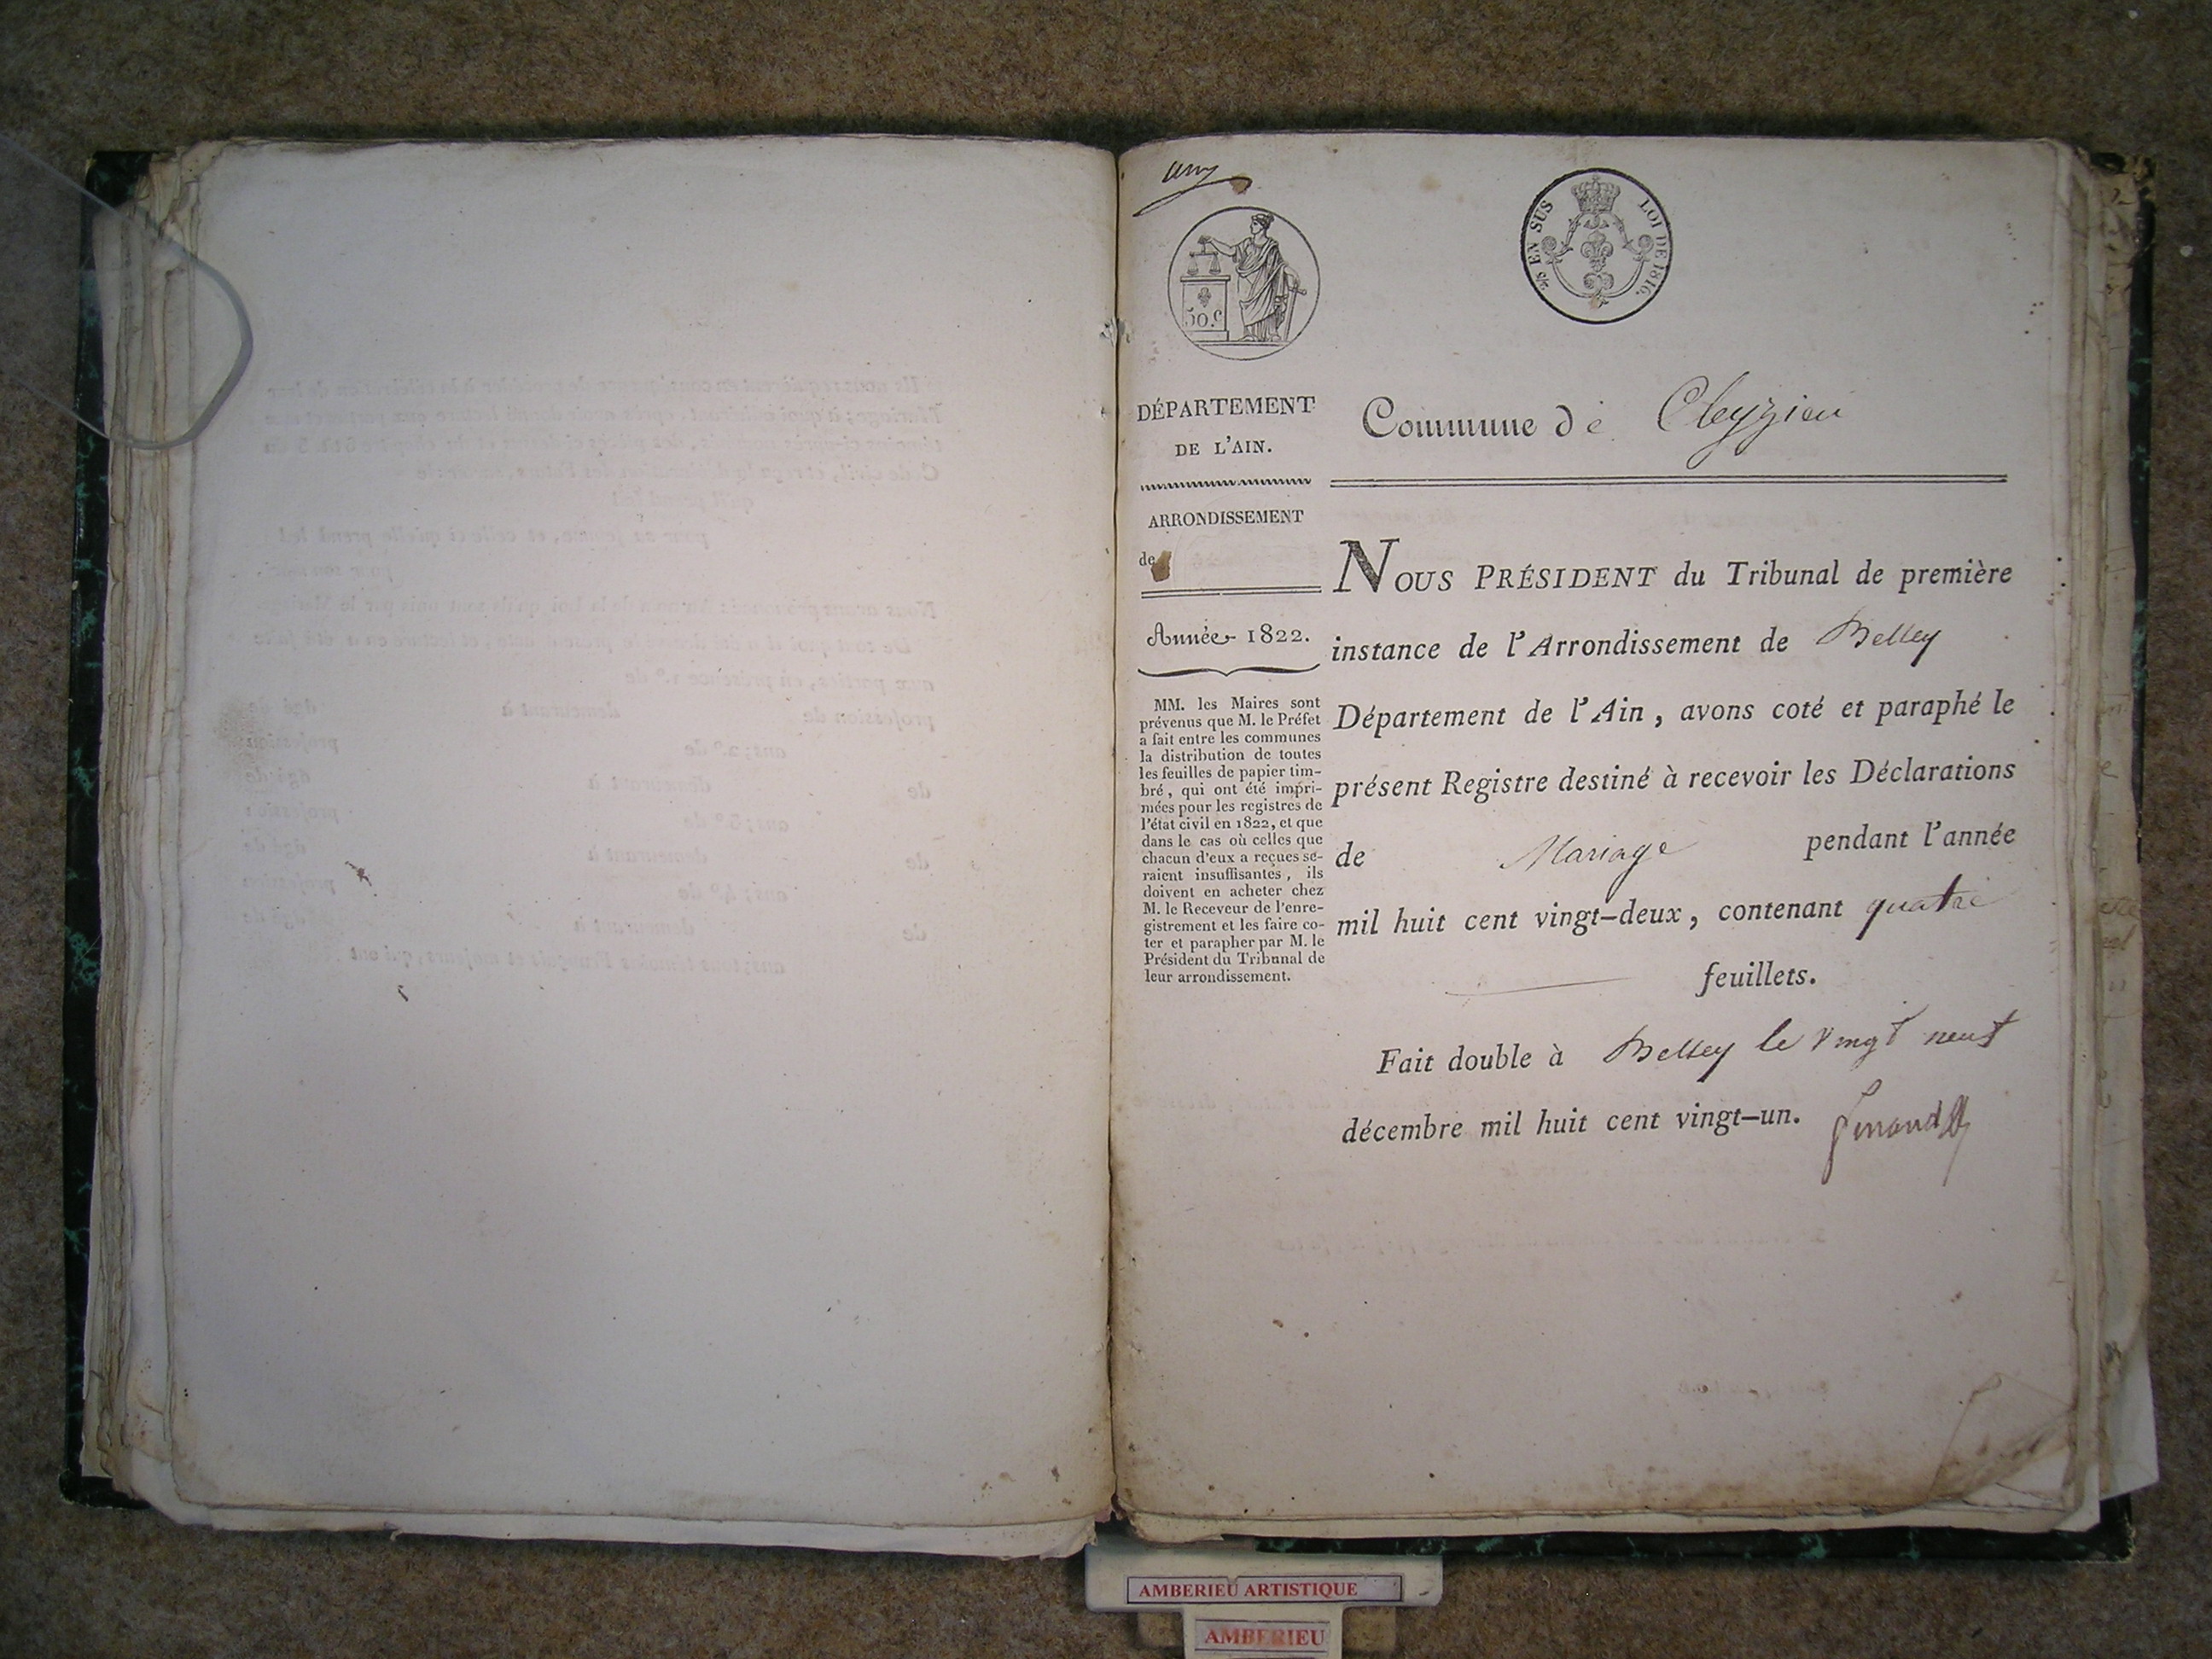 50 c
⁂ EN SUS LOI DE 1816.
DÉPARTEMENT
DE L'AIN.
ARRONDISSEMENT
de
Année 1822.
MM. les Maires sont
prévenus que M. le Préfet
a fait entre les communes
la distribution de toutes
les feuilles de papier tim-
bré, qui ont été impri-
mées pour les registres de
l'état civil en 1822, et que
dans le cas où celles que
chacun d'eux a reçues se-
raient insuffisantes, ils
doivent en acheter chez
M. le Receveur de l'enre-
gistrement et les faire co-
ter et parapher par M. le
Président du Tribunal de
leur arrondissement.
Commune de Cleyzieu
NOUS PRÉSIDENT du Tribunal de première
instance de l'Arrondissement de Belley
Département de l'Ain, avons coté et paraphé le
présent Registre destiné à recevoir les Déclarations
de Mariage pendant l'année
mil huit cent vingt-deux, contenant quatre
feuillets.
Fait double à Belley le vingt neuf
décembre mil huit cent vingt-un.
AMBERIEU ARTISTIQUE
AMBERIEU